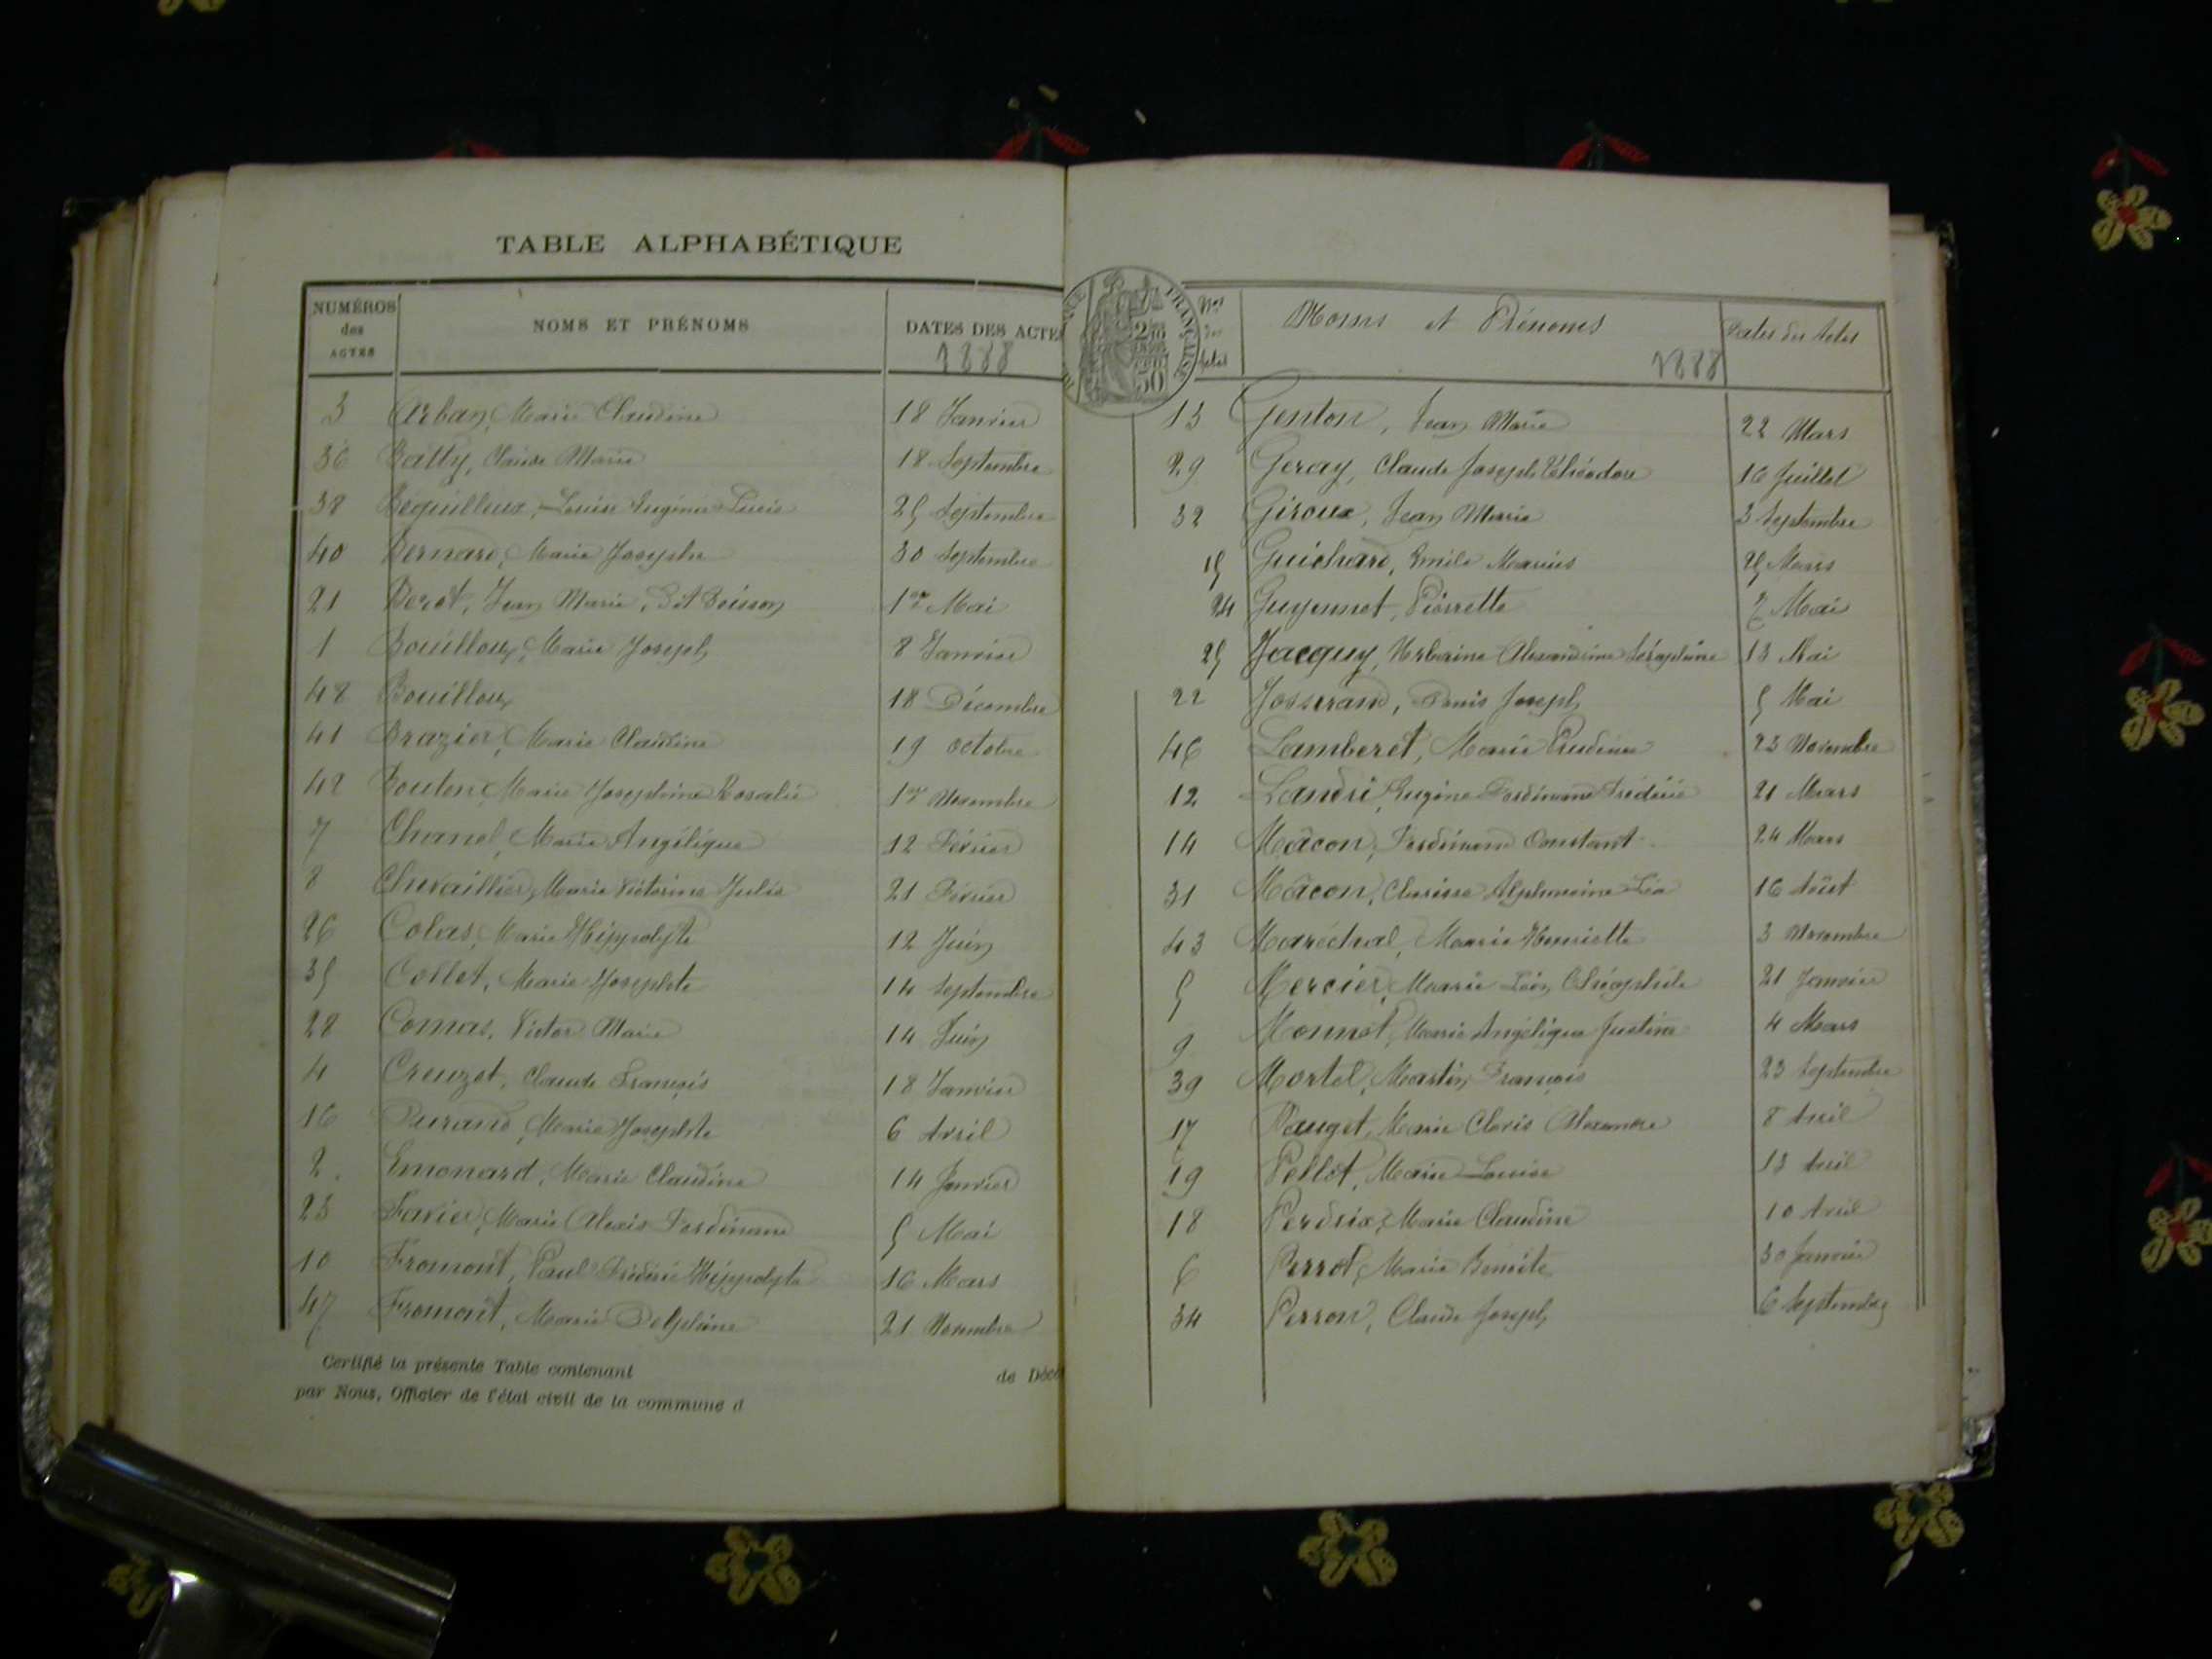 TABLE ALPHABÉTIQUE
NUMÉROS des ACTES NOMS ET PRÉNOMS DATES DES ACTE
1888
3 Arban, Marie Claudine 18 Janvier
36 Batty, Claude Marie 18 Septembre
38 Bequilleux, Louise Eugénie Lucie 25 Septembre
40 Bernard, Marie Josephe 30 Septembre
21 Berot, Jean Marie, dit Boisson 1er Mai
1 Bouilloux, Marie Joseph 8 Janvier
48 Bouilloux 18 Décembre
41 Brazier, Marie Claudine 19 octobre
42 Bouton, Marie Joséphine Rosalie 1er Novembre
7 Chanel, Marie Angélique 12 Février
8 Chevaillier, Marie Victorine Julie 21 Février
26 Colas, Marie Hippolyte 12 Juin
35 Collet, Marie Josephte 14 Septembre
28 Comas, Victor Marie 14 Juin
4 Creuzet, Claude François 18 Janvier
16 Durand, Marie Josephte 6 Avril
2. Emonard, Marie Claudine 14 Janvier
23 Favier, Marie Alexis Ferdinand 5 Mai
10 Fromont, Paul Frédéric Hippolyte 16 Mars
47 Fromont, Marie Delphine 21 Novembre
Certifié la présente Table contenant de Décè
par Nous, Officier de l'état civil de la commune d
FRANÇAISE
Nos des Actes Noms et Prénoms Dates des Actes
1888
13 Genton, Jean Marie 22 Mars
29 Geray, Claude Joseph Théodore 16 Juillet
32 Giroux, Jean Marie 3 Septembre
15 Guichard, Emile Marius 25 Mars
24 Guyennet, Pierrette 7 Mai
25 Jacquy, Urbaine Alexandrine Séraphine 13 Mai
22 Josserand, Denis Joseph 5 Mai
46 Lamberet, Marie Prudence 23 Novembre
12 Landri, Eugène Ferdinand Frédéric 21 Mars
14 Mâcon, Ferdinand Constant 24 Mars
31 Mâcon, Clarisse Alphonsine Léa 16 Août
43 Maréchal, Marie Henriette 3 Novembre
5 Mercier, Marie Léon Théophile 21 Janvier
9 Monnet, Marie Angélique Justine 4 Mars
39 Mortel, Martin François 23 Septembre
17 Nauget, Marie Clovis Alexandre 8 Avril
19 Pellet, Marie Louise 13 Avril
18 Perdrix, Marie Claudine 10 Avril
6 Perrot, Marie Benoîte 30 Janvier
34 Perron, Claude Joseph 6 Septembre